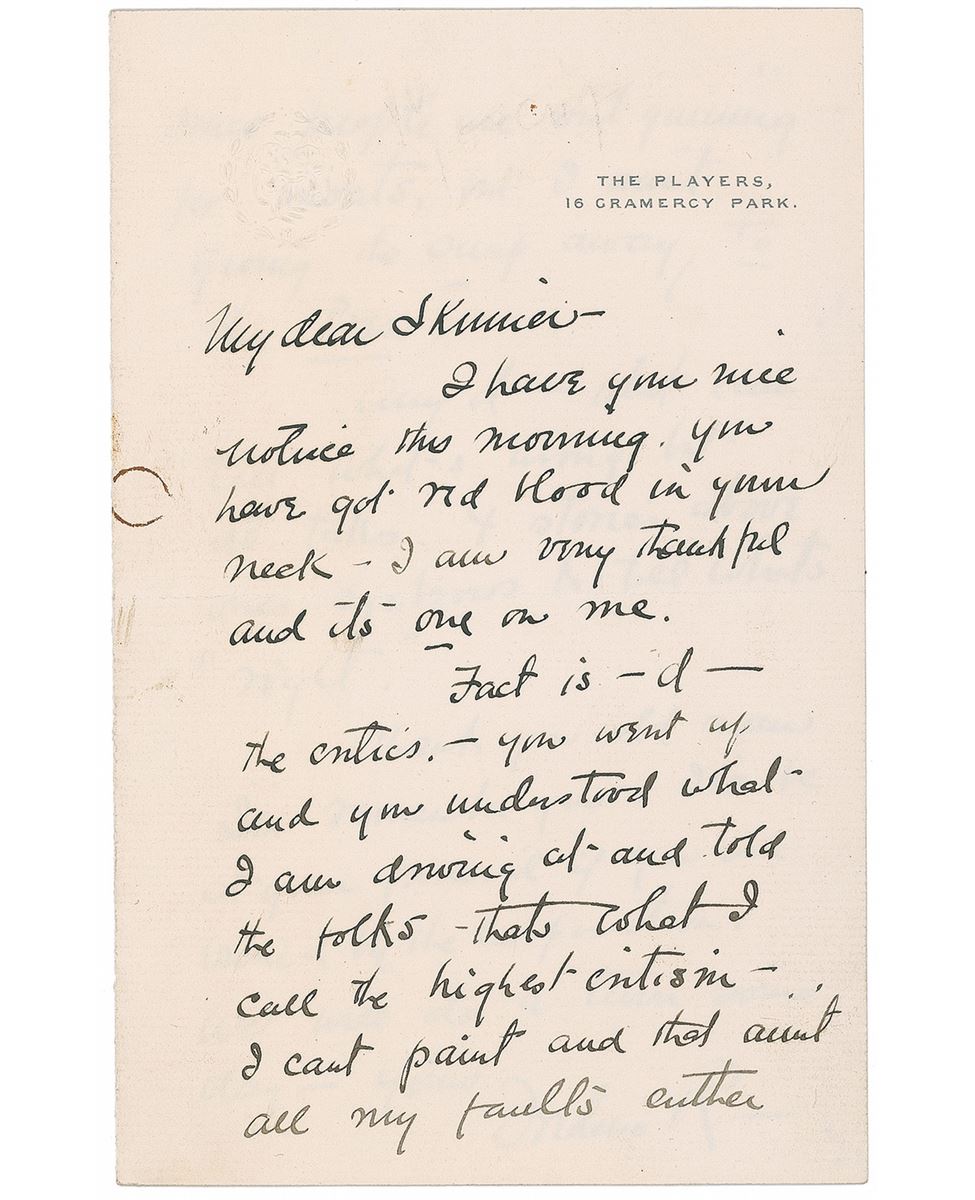 THE PLAYERS,
16 GRAMERCY PARK.
My dear Skinner –
I have your nice
notice this morning. you
have got red blood in your
neck – I am very thankful
and its one on me.
Fact is – d —
the critics. – you went up
and you understood what
I am driving at and told
the folks – thats what I
call the highest critism –
I cant paint and that aint
all my faults euther